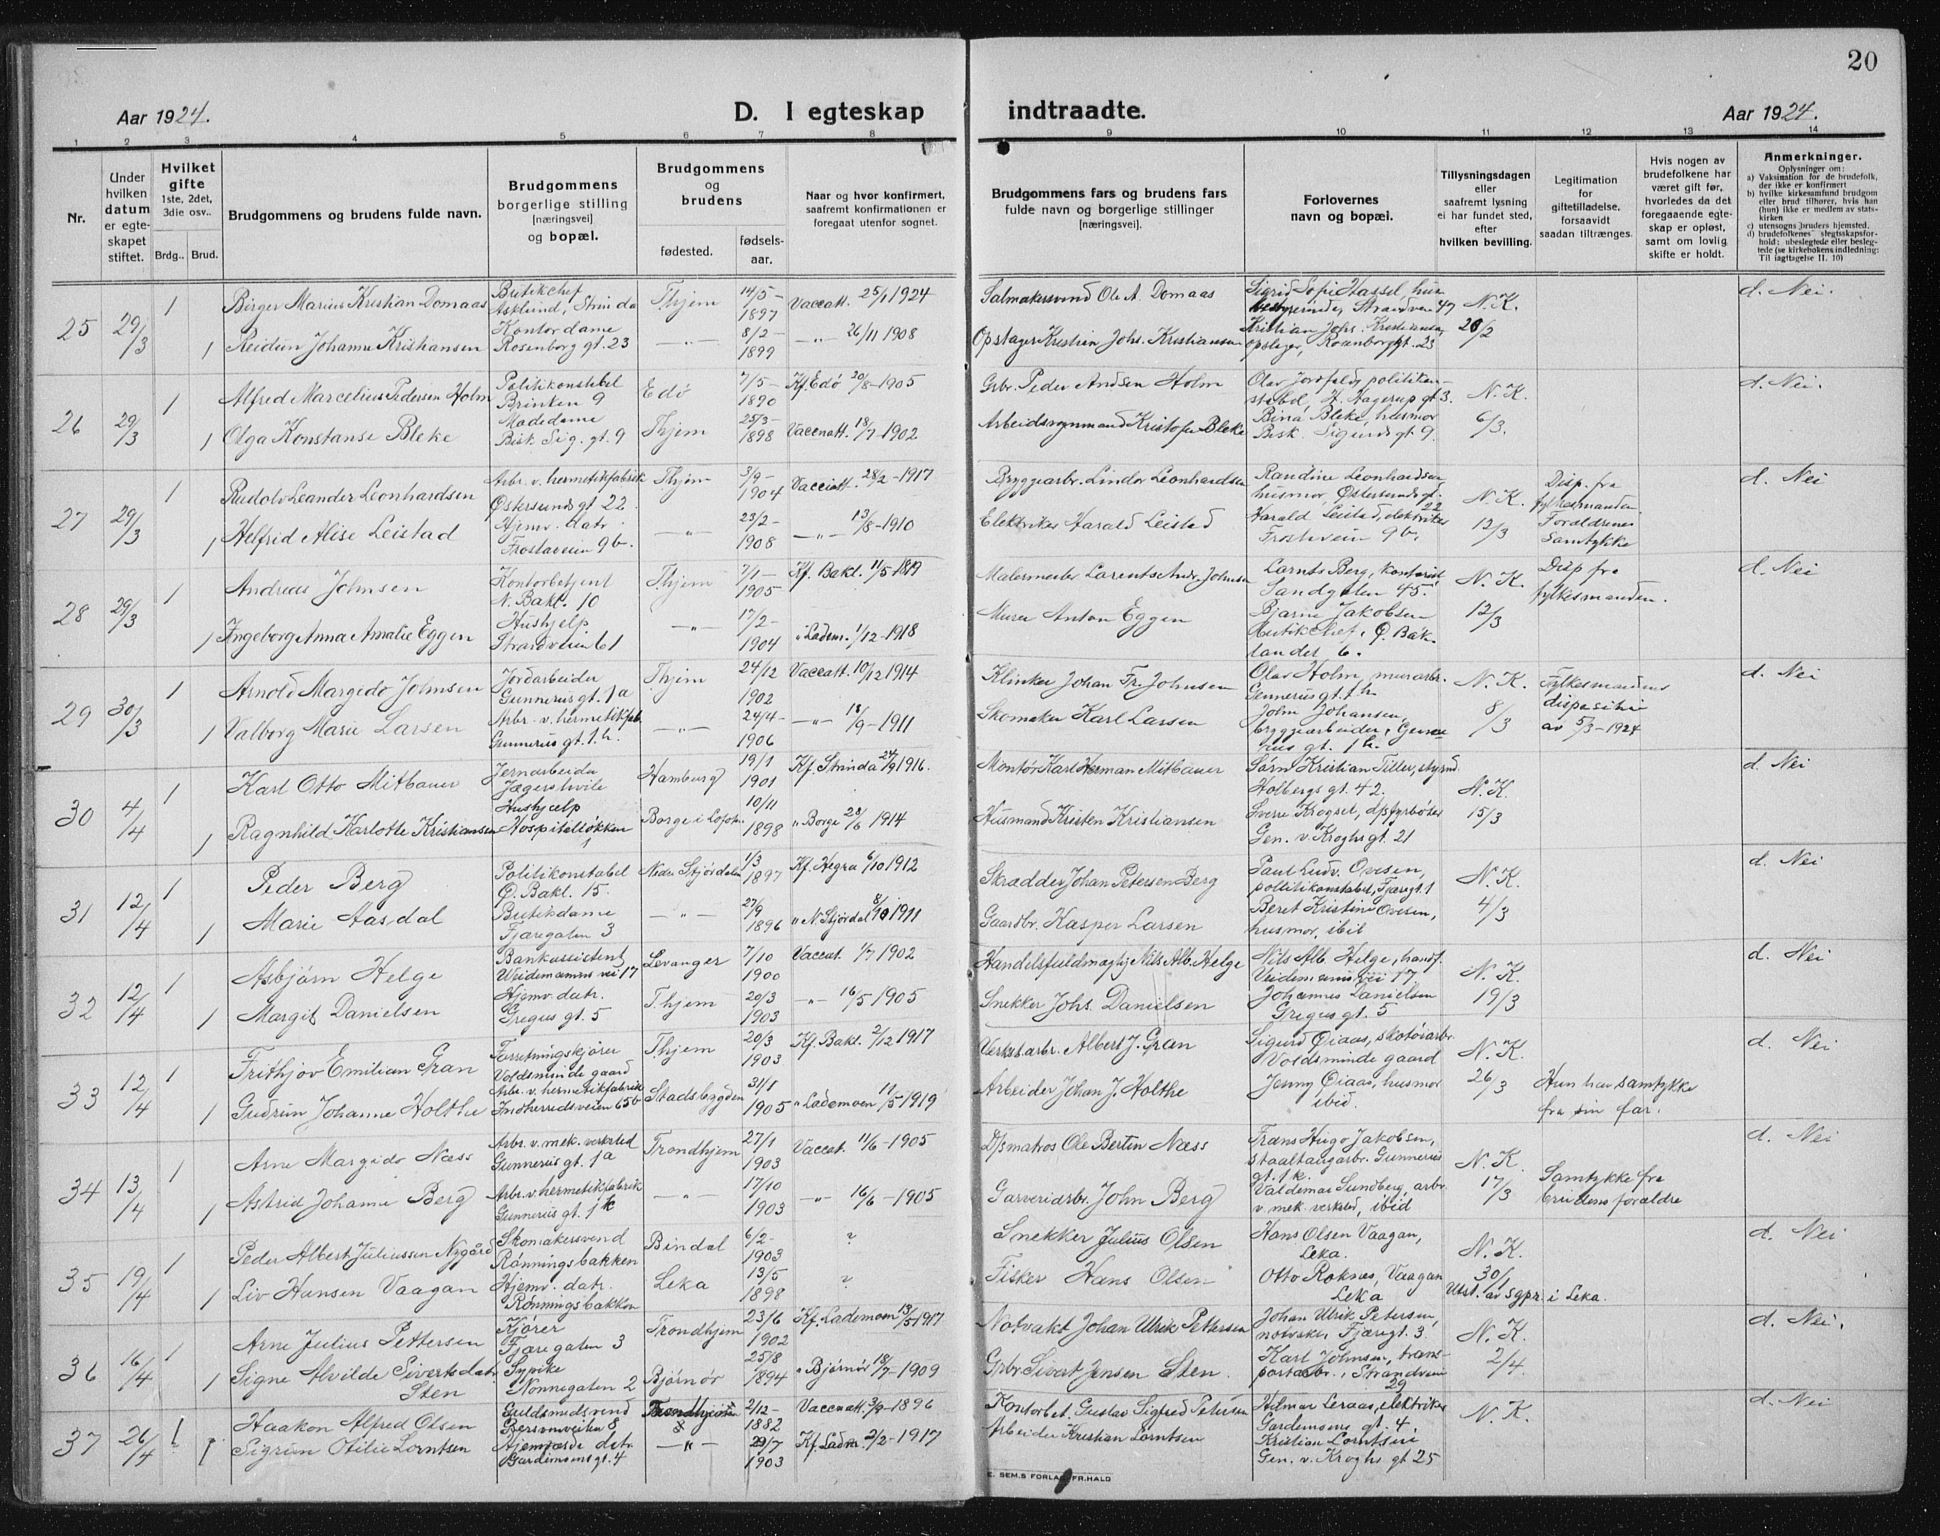 20
Aar 1924.
D. I egteskap
indtraadte.
Aar 1924.
1 2 3 4 5 6 7 8 9 10 11 12 13 14
Nr.
Under hvilken datum er egte-skapet stiftet.
Hvilket gifte 1ste, 2det, 3die osv..
Brdg.. Brud.
Brudgommens og brudens fulde navn.
Brudgommens borgerlige stilling [næringsvei] og bopæl.
Brudgommens og brudens
fødested.
fødsels-aar.
Naar og hvor konfirmert, saafremt konfirmationen er foregaat utenfor sognet.
Brudgommens fars og brudens fars fulde navn og borgerlige stillinger [næringsvei].
Forlovernes navn og bopæl.
Tillysningsdagen eller saafremt lysning ei har fundet sted, efter hvilken bevilling.
Legitimation for giftetilladelse, forsaavidt saadan tiltrænges.
Hvis nogen av brudefolkene har været gift før, hvorledes da det foregaaende egte-skap er opløst, samt om lovlig skifte er holdt.
Anmerkninger.
Oplysninger om:
a) Vaksination for de brudefolk, der ikke er konfirmert
b) hvilke kirkesamfund brudgom eller brud tilhører, hvis han (hun) ikke er medlem av stats-kirken
c) utensogns bruders hjemsted.
d) brudefolkenes slegtsskapsfor-hold: ubeslegtede eller besleg-tede (se kirkebokens indledning: Til iagttagelse 11. 10)
25 29/3 1 Birger Marius Kristian Domaas Butikchef Asklund, Strinda Thjem 14/5- 1897 Vaccatt. 25/1 1924 Salmakersvend Ole A. Domaas Sigrid Sofie Hassel, hus-bestyrerinde, Strandvei 47 N. K. d. Nei.
1 Reidun Johanne Kristiansen Kontordame Rosenborg gt. 23 -"- 8/2- 1899 -"- 26/11 1908 Opstager Kristian Johs. Kristiansen Kristian Johs. Kristiansen opstager, Rosenborggt. 23 28/2
26 29/3 1 Alfred Marcelius Pedersen Holm Politikonstabel Brinken 9 Edø 7/5- 1890 Kf. Edø 20/8-1905 Grbr. Peder Andsen Holm Olav Jordfald, politikon-stabel, H. Hagerup gt 3. N. K. d. Nei.
1 Olga Konstanse Bleke Madedame Bisk. Sig. gt. 9 Thjem 25/3- 1898 Vaccnatt. 18/7-1902 Arbeidsformand Kristofer Bleke Bina Bleke, husmor Bisk. Sigurds gt 9. 6/3.
27 29/3 1 Rudolv Leander Leonhardsen Arbr. v. hermetikfabrik Østersunds gt 22 Thjem 3/9- 1904 Vacciatt. 28/2-1917 Bryggearbr. Lindor Leonhardsen Randine Leonhardsen husmor, Østersunds gt. 22 N. K. Disp. fra fylkesmanden d. Nei
1 Helfrid Alise Leistad Hjemv. datr. Frostaveien 9b. -"- 23/2- 1908 -"- 13/8-1910 Elektriker Harald Leistad Harald Leistad, elektriker Frostavein 9b. 12/3 Foraldrenes Samtykke
28 29/3 1 Andreas Johnsen Kontorbetjent N. Bakl. 10 Thjem 7/1- 1905 Kf. Bakl. 11/5-1819 Malermester Lorents Andr. Johnsen Larnts Berg, kontorist Sandgaten 45. N. K. Disp fra fylkesmanden. d. Nei
1 Ingeborg Anna Amalie Eggen Hushjelp Strandveien 61 -"- 17/2- 1904 " Ladem. 1/12-1918 Murer Anton Eggen Bjarne Jakobsen Butikchef, Ø. Bak-landet 6. 12/3
29 30/3 1 Arnold Margido Johnsen Jordarbeider Gunnerus gt. 1a Thjem 24/12 1902 Vaccatt. 10/12 1914 Klinker Johan Fr. Johnsen Olav Holm, murarbr. Gunnerus gt. 1h N. K. Fylkesmandens disposition d. Nei
1 Valborg Marie Larsen Arbr. v. hermetikfab. Gunnerus gt. 1. h. -"- 24/4- 1906 -"- 18/9-1911 Skomaker Karl Larsen John Johansen, bryggearbeider, Gunne-rus gt. 1h. 8/3 av 5/3-1924
30 4/4 1 Karl Otto Mitbauer Jernarbeider Jægershvile Hamburg 19/1 1901 Kf. Strinda 24/9 1916. Montør Karl Herman Mitbauer Sørn Kristian Tiller, styrmd. Holbergs gt. 42. N. K. d. Nei
1 Ragnhild Karlotte Kristiansen Hushjelp Hospitalsløkken Borge i Lofoten 10/11 1898 " Borge 28/6 1914 Husmand Kristen Kristiansen Sverre Krogset, dpfyrbøter Gen. v. Kroghs gt. 21 15/3
31 12/4 1 Peder Berg Politikonstabel Ø. Bakl. 15. Nedre Stjørdalen 1/3 1897 Kf. Hegra 6/10 1912 Skrædder Johan Petersen Berg Paul Ludv. Ovesen, politikonstabel, Fjæregt. 1 N. K. d. Nei
1 Marie Aasdal Butikdame Fjæregaten 3 -"- 27/9 1896 " N. Stjørdal 8/10 1911 Gaardbr. Kasper Larsen Beret Kristine Ovesen, husmor, ibid 4/3
32 12/4 1 Asbjørn Helge Bankassistent Weidemanns vei 17 Levanger 7/10 1900 Vaccat. 1/7 1902 Handelsfuldmægtig Nils Alb. Helge Nils Alb Helge, handf. Weidemanns vei 17. N. K. d. Nei
1 Margit Danielsen Hjemv. datr. Gregus gt. 5 T.hjem 20/3 1903 -"- 16/5 1905 Snekker Johs. Danielsen Johannes Danielsen Gregus gt. 5 19/3
33 12/4 1 Frithjov Emilian Gran Forretningskjører Voldsminde gaard Thjem 20/3 1903 Kf. Bakl. 2/12 1917 Verkst.arbr. Albert J. Gran Sigurd Øiaas, skotøiarbr. Voldsminde gaard N. K. d. Nei
1 Gudrun Johanne Holthe Arbr. v. hermetikfabrik Indherredsveien 65b Stadsbygden 31/1 1905 " Lademoen 11/5 1919 Arbeider Johan J. Holthe Jenny Øiaas, husmor ibid. 26/3 Hun har samtykke fra sin far.
34 13/4 1 Arne Margido Næss Arbr. v. mek. verksted Gunnerus gt. 1a Trondhjem 27/1 1903 Vaccat. 11/6-1905 D/smatros Ole Bertin Næss Frans Hugo Jakobsen, staaltaugarbr. Gunnerus gt. 1k. N. K. Samtykke fra d. Nei
1 Astrid Johanne Berg Arbr. v. hermetikfabrik Gunnerus gt. 1k -"- 17/10 1903 -"- 16/6-1905 Garveriarbr. John Berg Valdemar Sundberg, arbr. v. mek. verksted, ibid 17/3 brudens foraldre
35 19/4 1 Peder Albert Juliussen Nygård Skomakersvend Rønningsbakken Bindal 6/2- 1903 ? Snekker Julius Olsen Hans Olsen Vaagan, Leka. N. K. d. Nei
1 Liv Hansen Vaagan Hjemv. datr. Rønningsbakken Leka 13/5 1898 ? Fisker Hans Olsen Otto Roknes, Vaagan Leka 30/1 Utst. av sgpr. i Leka.
36 16/4 1 Arne Julius Pettersen Kjører Fjæregaten 3 Trondhjem 23/6 1902 Kf. Lademoen 13/5 1917 Notvakt Johan Ulrik Pettersen Johan Ulrik Petersen, notvaker, Fjæregt. 3. N. K. d. Nei.
1 Signe Alvilde Sivertsdatr Sten Sypike Nonnegaten 2 Bjørnør 25/8 1894 " Bjørnør 18/7-1909 Grbr Sivert Jensen Sten. Karl Johnsen, trans-portarbr., Strandveien 29 2/4
37 26/4 1 Haakon Alfred Olsen Guldsmedsvend Bersvenveien 8 Trondhjem 2/12- 1882 Vaccnatt. 3/9-1896 Kontorbet. Gustav Sigfred Petersen Hilmar Leraas, elektriker Gardemoens gt. 4. N. K. d. Nei
1 Sigrun Otilie Lorntsen Hjemværde. datr. Gardemoens gt. 4 -"- 29/7 1903 Kf. Ladm. 2/2-1917 Arbeider Kristian Lorntsen Kristian Lorntsen Gen. v. Kroghs gt 25
E. SEM.S FORLAG FR.HALD